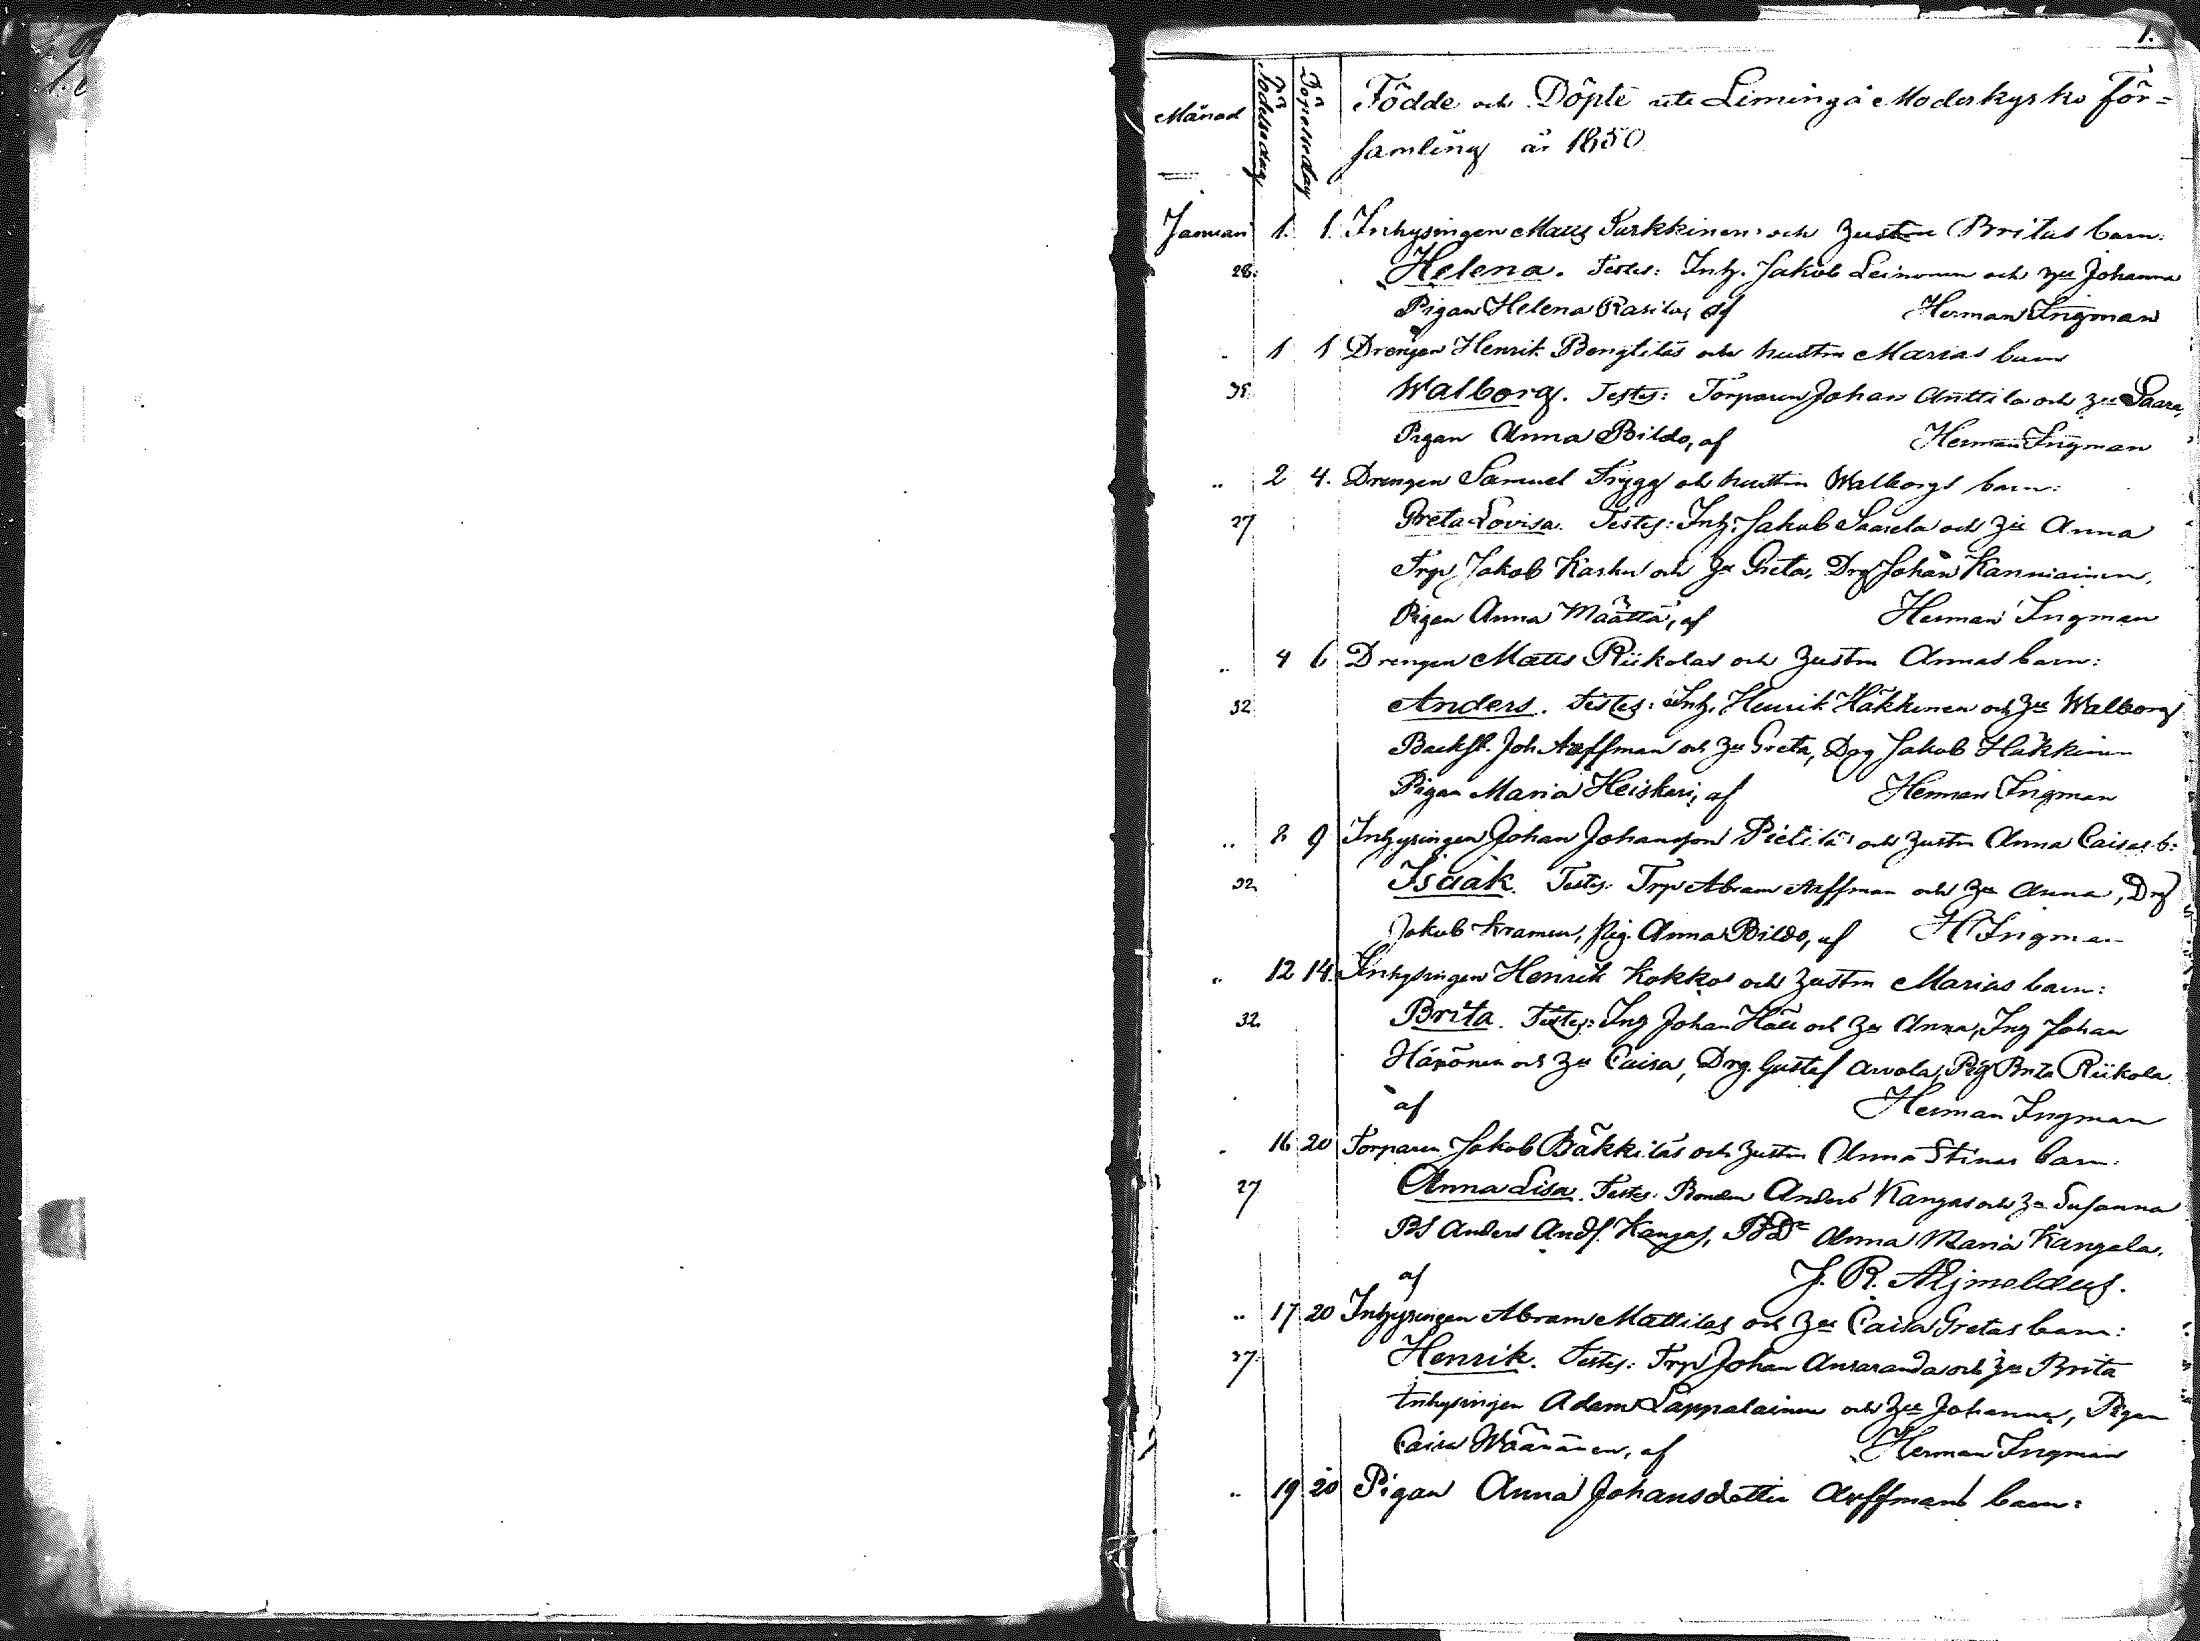 1.
Månad Födelsedag Döpelsedag Födde och Döpte uti Limingå Moderkyrko För=
samling år 1850
Januari 1. 1. Inhysingen Matts Surkkinens och Hustru Britas barn:
28. Helena. Testes: Inh. Jakob Leinonen och Hu Johanna
Pigan Helena Rasila, af Herman Ingman
1 1 Drengen Henrik Bengtiläs och hustru Marias barn
35. Walborg. Testes: Torparen Johan Anttila och Hu Saara,
Pigan Anna Bildo, af Herman Ingman
.. 2 4. Drengen Samuel Trygg och hustru Walborgs barn:
27 Greta Lovisa. Testes: Inh. Jakob Saarela och Hu Anna
Trp Jakob Karhu och Hu Greta, Drg Johan Kanniainen,
Pigan Anna Määttä, af Herman Ingman
.. 4 6 Drengen Matts Riikolas och Hustru Annas barn:
32 Anders. Testes: Inh. Henrik Häkkinen och Hu Walborg
Backst. Joh Arffman och Hu Greta, Drg Jakob Häkkinen
Pigan Maria Heiskari, af Herman Ingman
.. 8 9 Inhysingen Johan Johansson Pietilä's och Hustru Anna Caisas b:
32 Isaak. Testes: Trp Abram Arffman och Hu Anna, Drg
Jakob Kramen, Pig. Anna Bildo, af H Ingman
.. 12 14. Inhysingen Henrik Kokkos och Hustru Marias barn:
32 Brita. Testes: Ing Johan Hall och Hu Anna, Ing Johan
och Hu Caisa, Drg. Gustaf Arvola, Pig Brita Riikola
af Herman Ingman
. 16 20 Torparen Jakob Bäkkiläs och Hustru Anna Stinas barn:
27 Anna Lisa. Testes: Bonden Anders Kangas och Hu Susanna
BS Anders Ands. Kangas, BD Anna Maria Kangala,
af J. R. Aejmelæus.
.. 17 20 Inhysingen Abram Mattilas och Hu Caisa Gretas barn:
37. Henrik. Testes: Trp Johan Ansaranda och Hu Brita
Inhysingen Adam Lappalainen och Hu Johanna, Pigan
Caisa Wäänänen, af Herman Ingman
.. 19 20 Pigan Anna Johansdotter Arffmans barn: